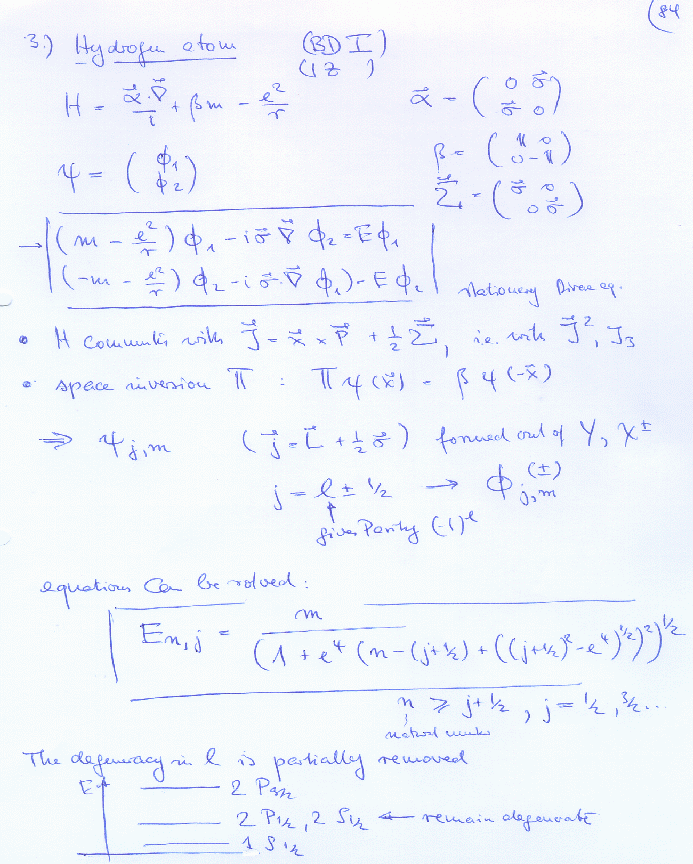 (84
3.) Hydrogen atom (BD I)
(1 Z )
H = \frac{\vec{α}·\vec{∇}}{i} + βm - \frac{e^2}{r}
\vec{α} = \begin{pmatrix} 0 & \vec{σ} \\ \vec{σ} & 0 \end{pmatrix}
ψ = \begin{pmatrix} ϕ_1 \\ ϕ_2 \end{pmatrix}
β = \begin{pmatrix} 𝟙 & 0 \\ 0 & -𝟙 \end{pmatrix}
\vec{Σ} = \begin{pmatrix} \vec{σ} & 0 \\ 0 & \vec{σ} \end{pmatrix}
→ (m - \frac{e^2}{r}) ϕ_1 - i\vec{σ}\vec{∇} ϕ_2 = Eϕ_1
(-m - \frac{e^2}{r}) ϕ_2 - i\vec{σ}·\vec{∇} ϕ_1) = E ϕ_2
stationary Dirac eq.
• H commutes with \vec{J} = \vec{x} × \vec{P} + \frac{1}{2}\vec{Σ}, i.e. with \vec{J}^2, J_3
• space inversion Π : Π ψ(\vec{x}) = β ψ(-\vec{x})
⇒ ψ_{j,m} (\vec{j} = \vec{L} + \frac{1}{2}\vec{σ}) formed out of Y, χ^±
j = l ± 1/2 → ϕ_{j,m}^{(±)}
↑
gives Parity (-1)^l
equations can be solved:
E_{n,j} = \frac{m}{(1 + e^4 (n-(j+½) + ((j+½)^2 - e^4)^{1/2})^2)^{1/2}}
n ≥ j+½, j = ½, 3/2...
natural number
The degeneracy in l is partially removed
E
2 P_{3/2}
2 P_{1/2}, 2 S_{1/2} ← remain degenerate
1 S_{1/2}